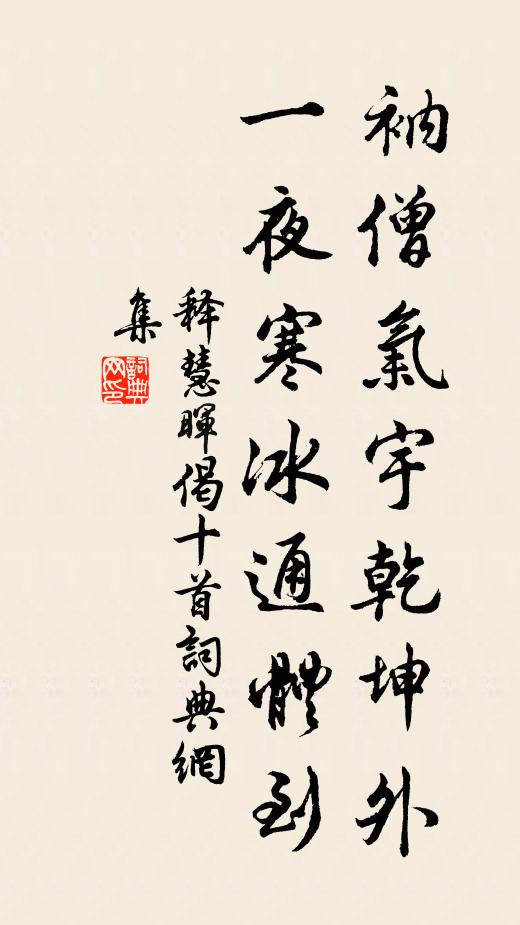 衲僧氣宇乾坤外
一夜寒冰通體到
释慧暉偈十首詞典網
集
詞典
网印